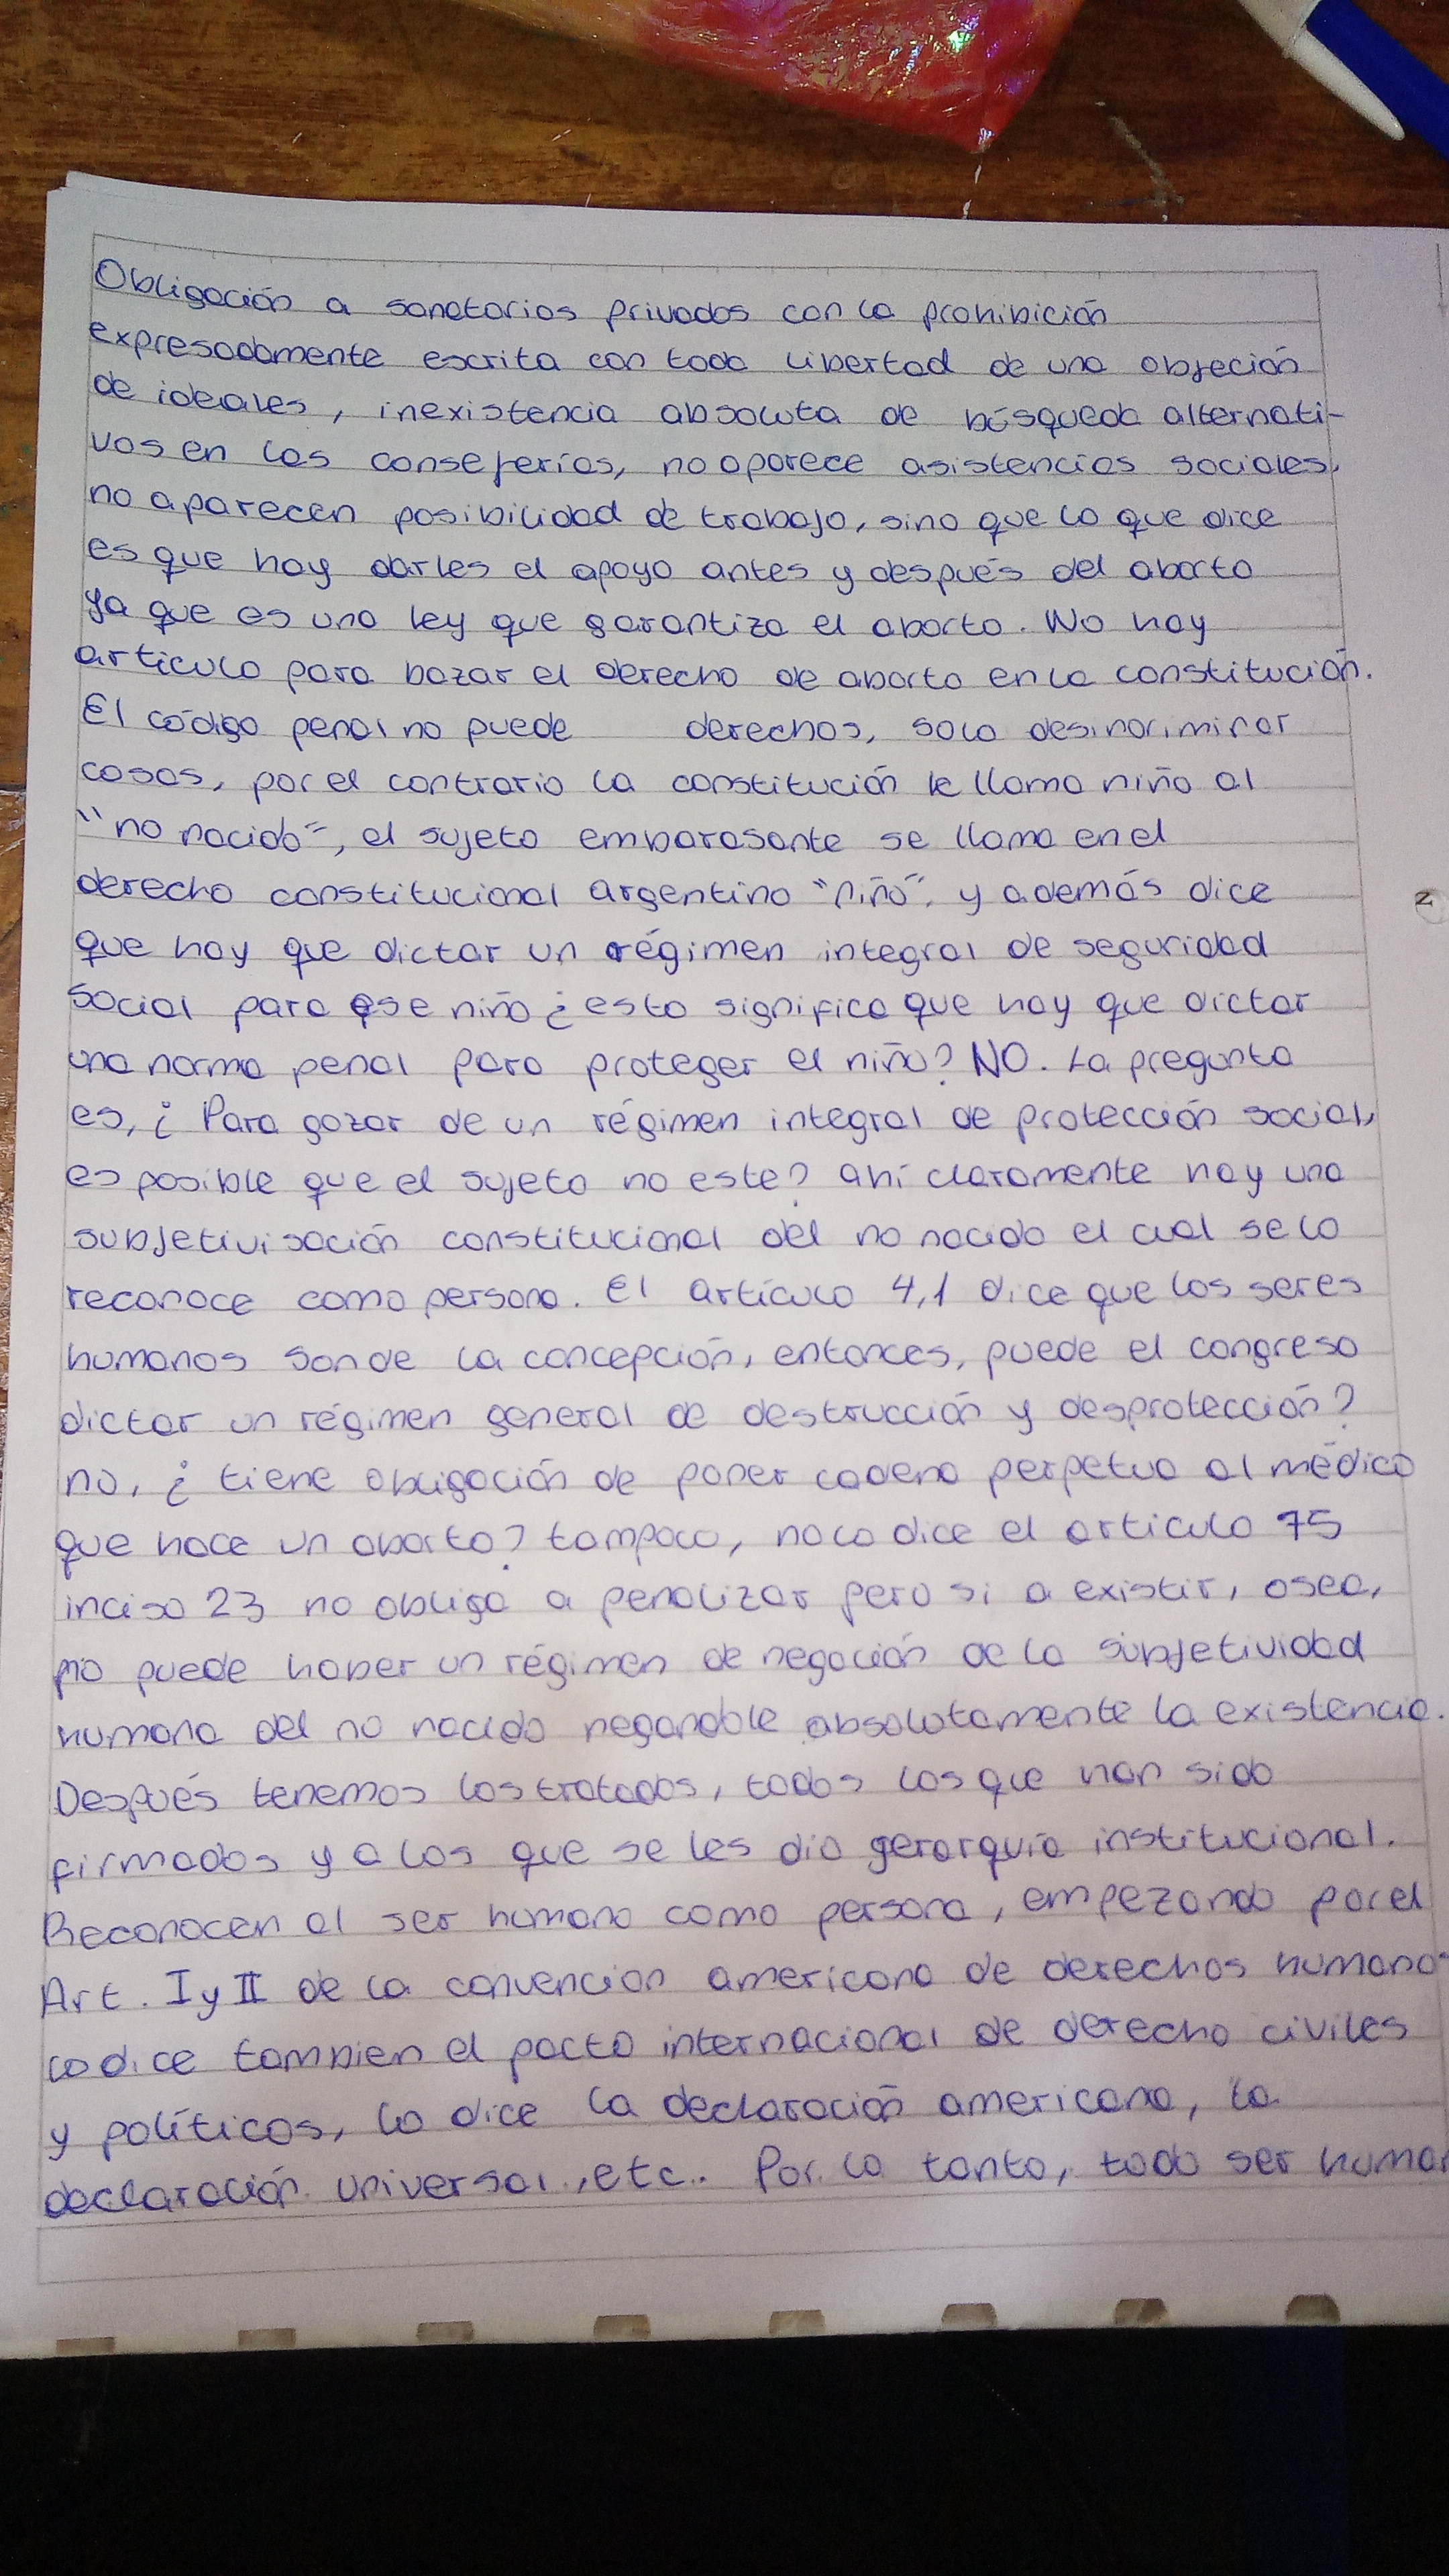 Obligación a sanatorios privados con la prohibición
expresadamente escrita con toda libertad de una objeción
de ideales, inexistencia absoluta de búsqueda alternati-
vas en las consejerías, no aparece asistencias sociales,
no aparecen posibilidad de trabajo, sino que lo que dice
es que hay darles el apoyo antes y después del aborto
ya que es una ley que garantiza el aborto. No hay
artículo para bazar el derecho de aborto en la constitución.
El código penal no puede derechos, solo desincriminar
cosas, por el contrario la constitución le llama niño al
"no nacido", el sujeto embarasante se llama en el
derecho constitucional argentino "niño", y además dice
que hay que dictar un régimen integral de seguridad
social para ese niño ¿esto significa que hay que dictar
una norma penal para proteger el niño? NO. La pregunta
es, ¿Para gozar de un régimen integral de protección social,
es posible que el sujeto no este? ahí claramente hay una
subjetivisación constitucional del no nacido el cual se lo
reconoce como persona. El artículo 4,1 dice que los seres
humanos son de la concepción, entonces, puede el congreso
dictar un régimen general de destrucción y desprotección?
no, ¿tiene obligación de poner cadena perpetua al médico
que hace un aborto? tampoco, no lo dice el artículo 75
inciso 23 no obliga a penalizar pero si a existir, osea,
no puede haber un régimen de negación de la subjetividad
humana del no nacido negandole absolutamente la existencia.
Después tenemos los tratados, todos los que han sido
firmados y a los que se les dio gerarquía institucional.
Reconocen al ser humano como persona, empezando por el
Art. I y II de la convencion americana de derechos humanos
lo dice tambien el pacto internacional de derecho civiles
y políticos, lo dice la declaración americana, la
declaración universal, etc. Por lo tanto, todo ser human